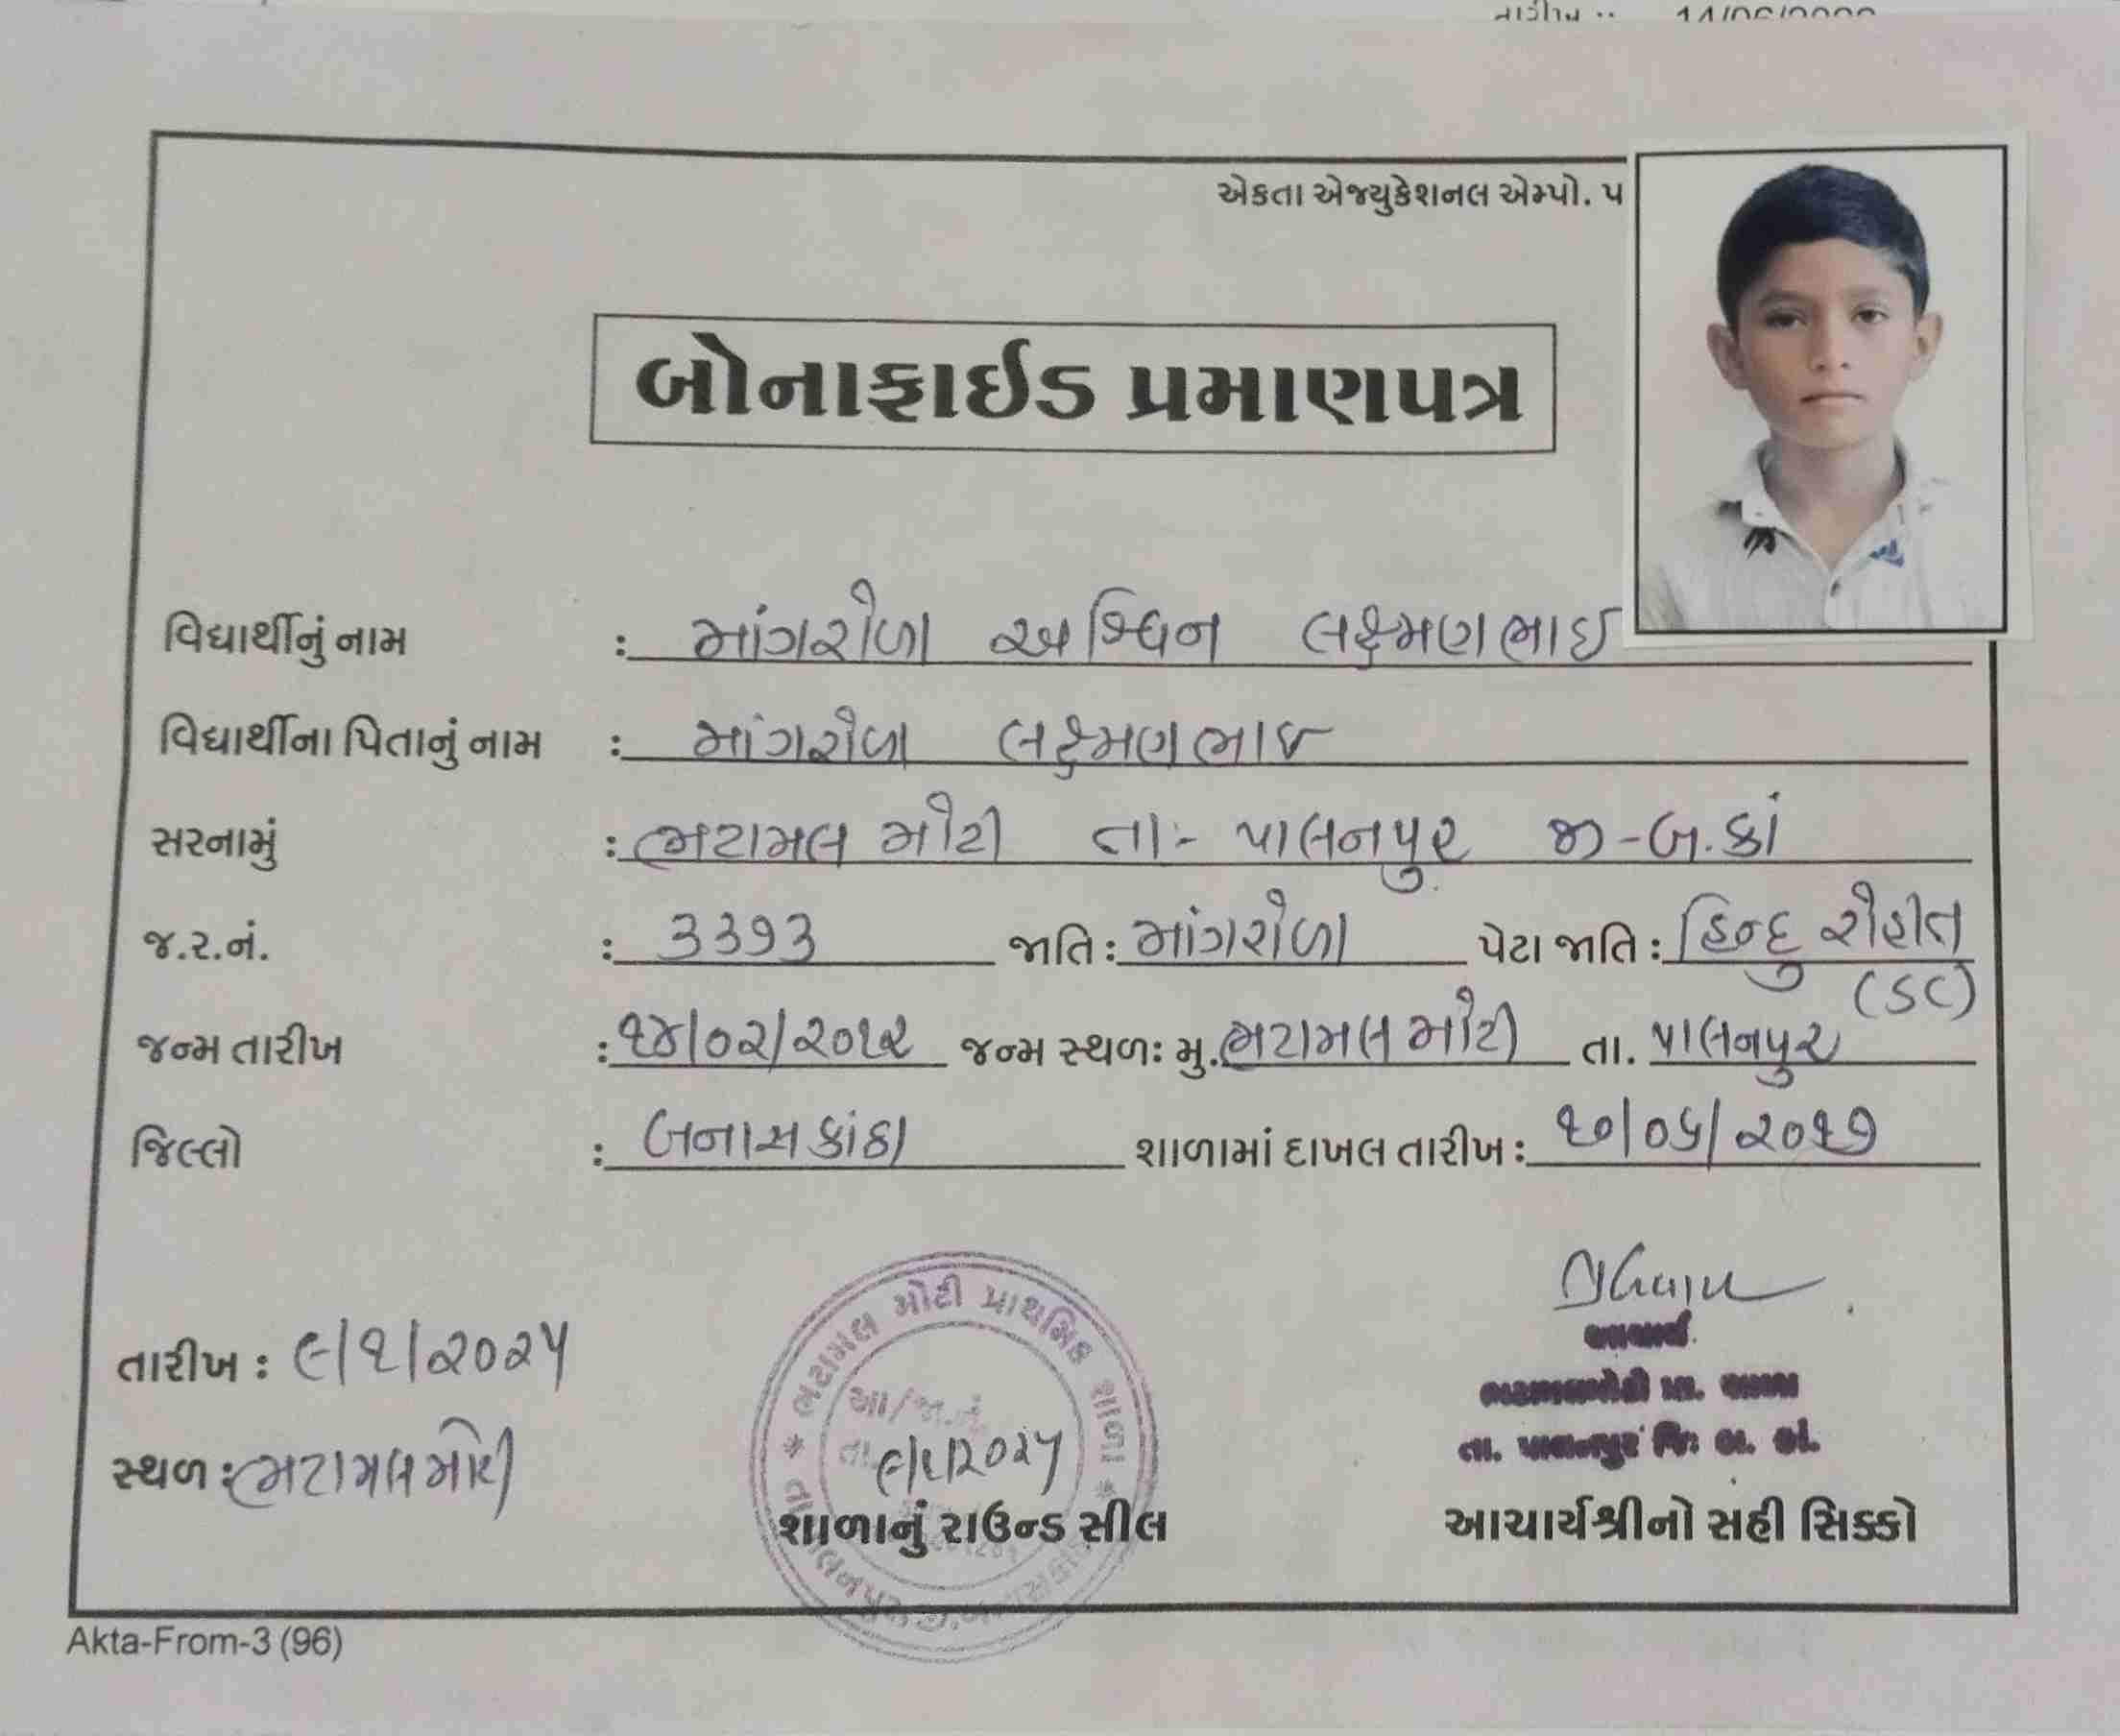 તારીખ :
એકતા એજ્યુકેશનલ એમ્પો. પ
બોનાફાઈડ પ્રમાણપત્ર
વિદ્યાર્થીનું નામ : માંગરોળા અશ્વિન લક્ષ્મણભાઇ
વિદ્યાર્થીના પિતાનું નામ : માંગરોળા લક્ષ્મણભાઇ
સરનામું : ભટામલ મોટી તા:- પાલનપુર જી-બ.કાં
જ.ર.નં. : 3393 જાતિ : માંગરોળા પેટા જાતિ : હિન્દુ રોહીત
(SC)
જન્મ તારીખ : ૧૪/૦૨/૨૦૧૨ જન્મ સ્થળઃ મુ. ભટામલ મોટી તા. પાલનપુર
જિલ્લો : બનાસકાંઠા શાળામાં દાખલ તારીખ : ૧૦/૦૬/૨૦૧૭
તારીખ : ૯/૧/૨૦૨૫
સ્થળ : ભટામલ મોટી
* ભટામલ મોટી પ્રાથમિક શાળા *
૯/૧/૨૦૨૫
શાળાનું રાઉન્ડ સીલ
આચાર્ય
ભટામલમોટી પ્રા. શાળા
તા. પાલનપુર જિ. બ. કાં.
આચાર્યશ્રીનો સહી સિક્કો
Akta-From-3 (96)